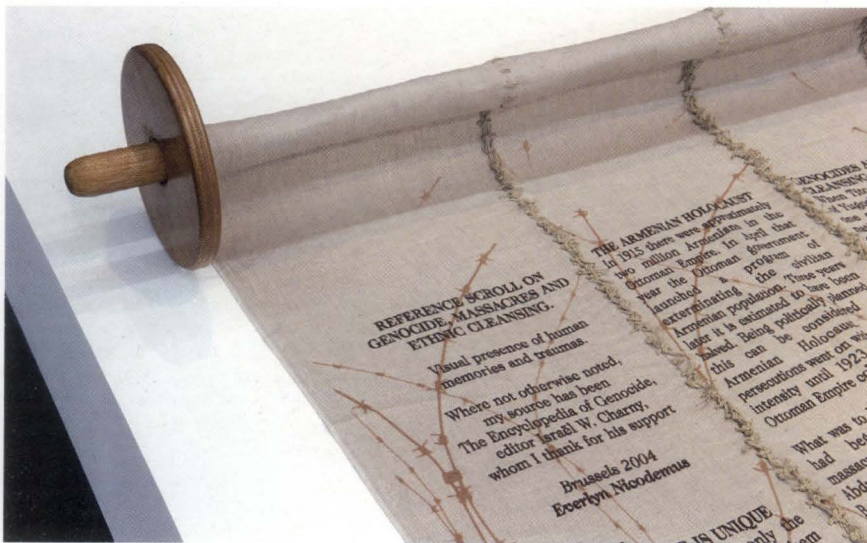 REFERENCE SCROLL ON
GENOCIDE, MASSACRES AND
ETHNIC CLEANSING.
Visual presence of human
memories and traumas.
Where not otherwise noted,
my source has been
The Encyclopedia of Genocide,
editor Israël W. Charny,
whom I thank for his support
Brussels 2004
Everlyn Nicodemus
IS UNIQUE
only the
THE ARMENIAN HOLOCAUST
In 1915 there were approximately
two million Armenians in the
Ottoman Empire. In April that
year the Ottoman government
launched a program of
exterminating the civilian
Armenian population. Three years
later it is estimated to have been
halved. Being politically planned
this can be considered
Armenian Holocaust
persecutions went on
intensity until 1923
Ottoman Empire
What was to
had
GENOCIDES
CLEANSING